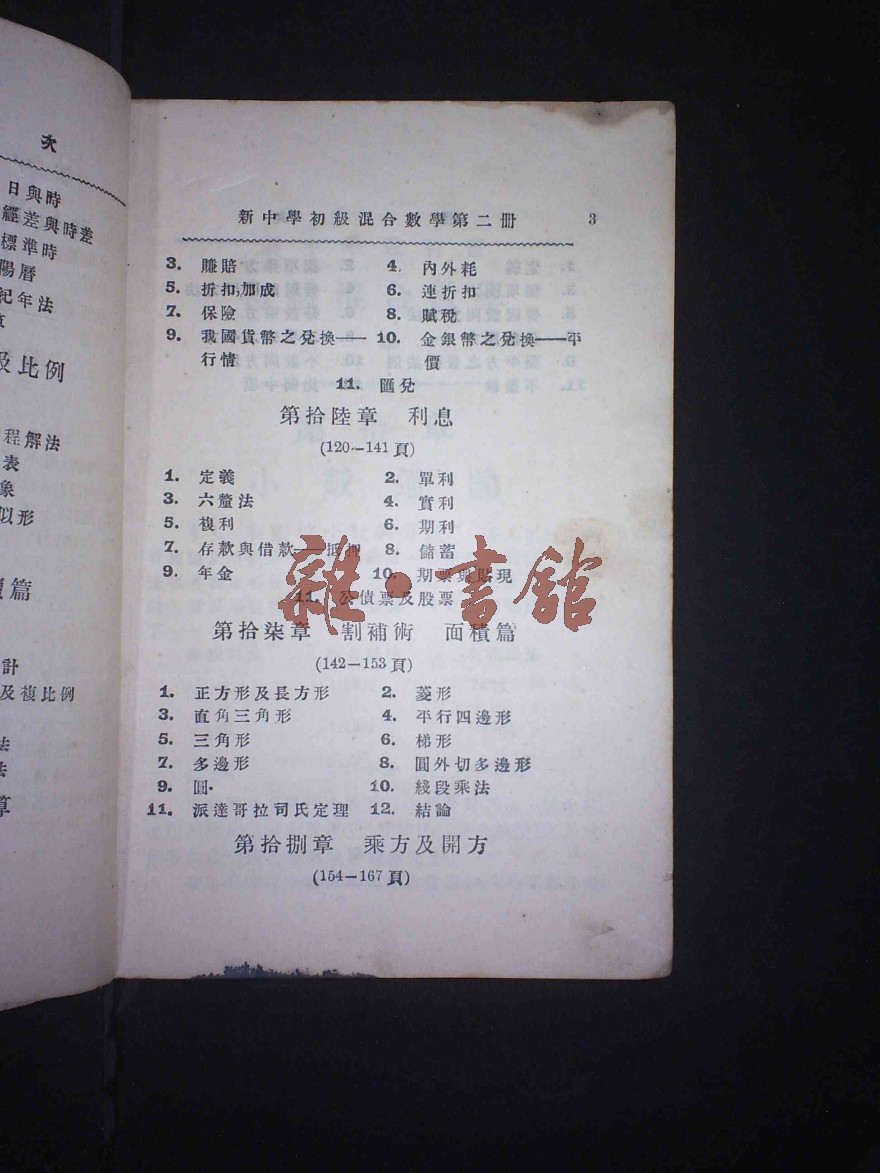 次
日與時
經差與時差
標準時
陽曆
紀年法
及比例
程解法
表
象
似形
篇
計
及複比例
法
法
算
新中學初級混合數學第二冊 3
3. 賺賠 4. 內外耗
5. 折扣,加成 6. 連折扣
7. 保險 8. 賦稅
9. 我國貨幣之兌換—— 10. 金銀幣之兌換——平
行情 價
11. 匯兌
第拾陸章 利息
(120—141頁)
1. 定義 2. 單利
3. 六釐法 4. 實利
5. 複利 6. 期利
7. 存款與借款——抵押 8. 儲蓄
9. 年金 10. 期票與貼現
11. 公債票及股票
雜·書館
第拾柒章 割補術 面積篇
(142—153頁)
1. 正方形及長方形 2. 菱形
3. 直角三角形 4. 平行四邊形
5. 三角形 6. 梯形
7. 多邊形 8. 圓外切多邊形
9. 圓 10. 綫段乘法
11. 派達哥拉司氏定理 12. 結論
第拾捌章 乘方及開方
(154—167頁)